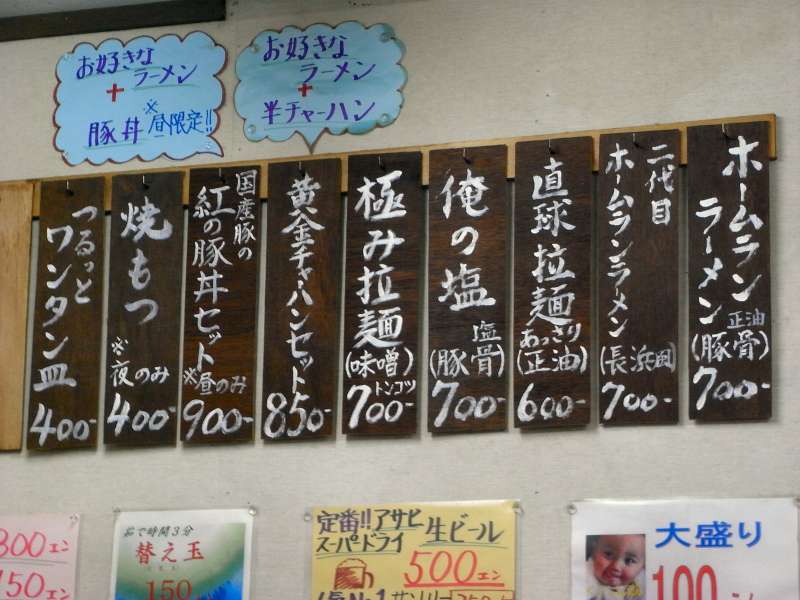 お好きな
ラーメン
+
豚丼 ※昼限定!!
お好きな
ラーメン
+
半チャーハン
ホームラン
ラーメン
正油
(豚骨)
700-
二代目
ホームランラーメン
(長浜風)
700-
直球拉麺
あっさり
(正油)
600-
俺の塩
塩
(豚骨)
700-
極み拉麺
(味噌)
トンコツ
700-
黄金チャーハンセット
850-
国産豚の
紅の豚丼セット
※昼のみ
900-
焼もつ
※夜のみ
400-
つるっと
ワンタン皿
400-
300エン
150エン
茹で時間3分
替え玉
150
定番!!アサヒ
スーパードライ
生ビール
500エン
大盛り
100